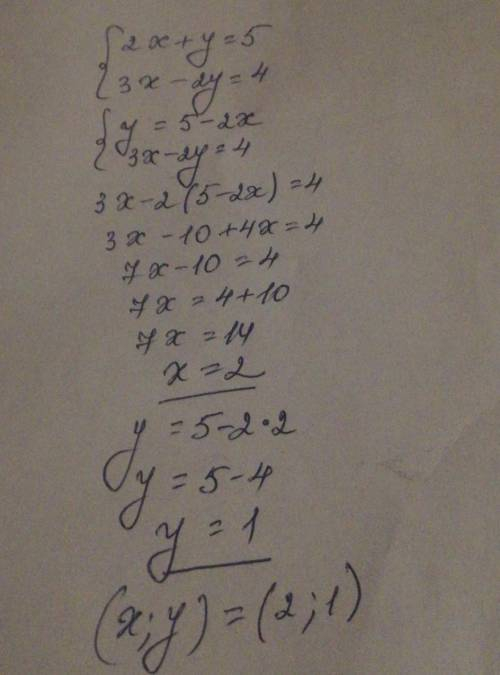 {2x+y=5
3x-2y=4
{y=5-2x
3x-2y=4
3x-2(5-2x)=4
3x-10+4x=4
7x-10=4
7x=4+10
7x=14
x=2
y=5-2·2
y=5-4
y=1
(x;y)=(2;1)